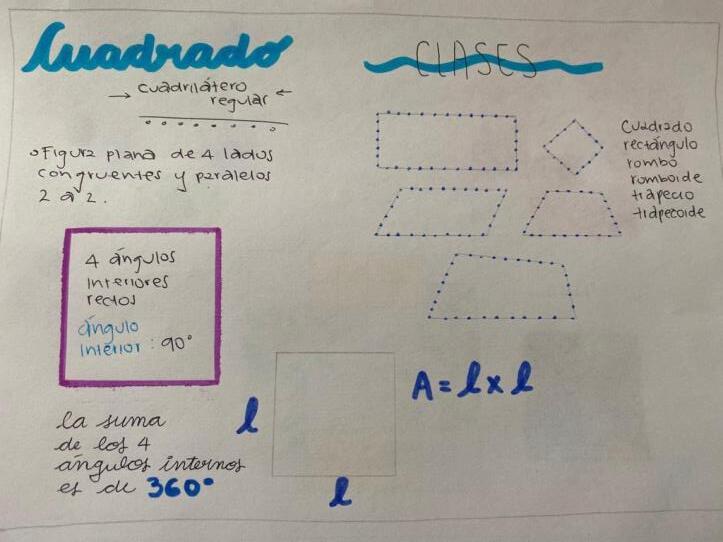 Cuadrado
→ cuadrilátero
regular ←
Figura plana de 4 lados
congruentes y paralelos
2 a 2.
4 ángulos
interiores
rectos
ángulo
interior : 90°
la suma
de los 4
ángulos internos
es de 360°
CLASES
Cuadrado
rectángulo
rombo
romboide
trapecio
trapecoide
l
l
A = l x l